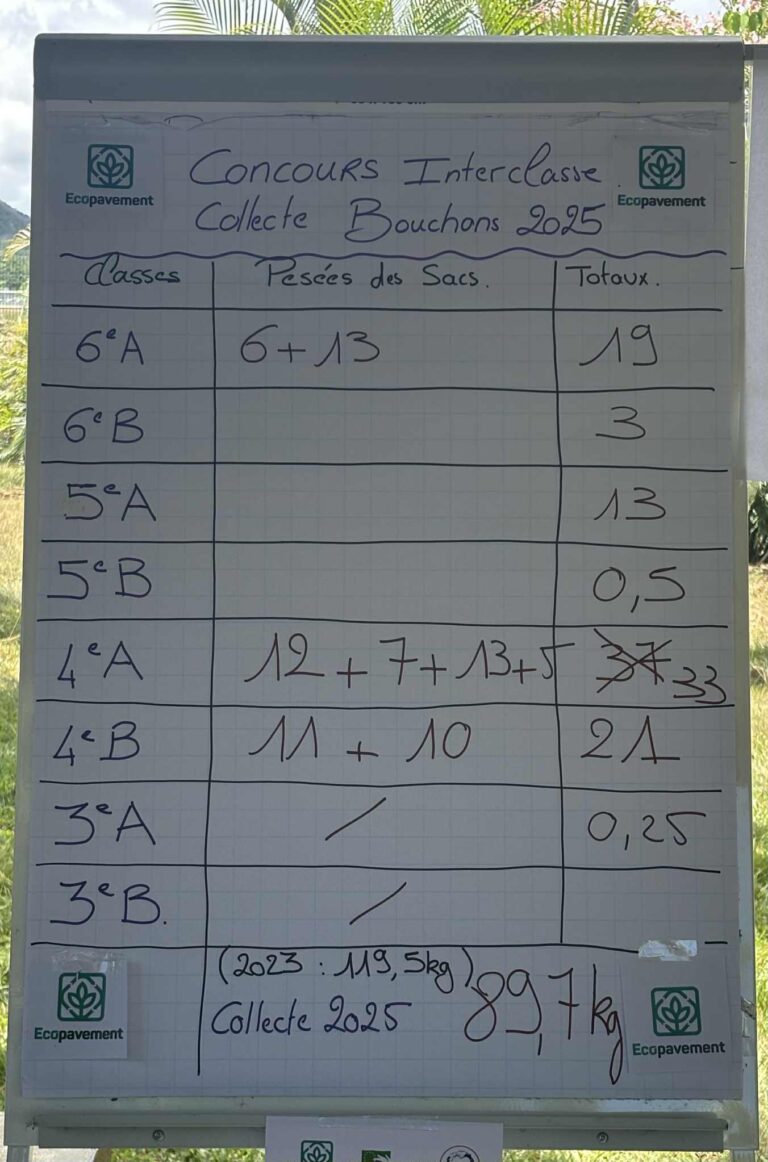 Ecopavement
Concours Interclasse
Collecte Bouchons 2025
Ecopavement
Classes Pesées des Sacs. Totaux.
6eA 6+13 19
6eB 3
5eA 13
5eB 0,5
4eA 12 + 7 + 13+5 37 33
4eB 11 + 10 21
3eA / 0,25
3eB. /
(2023 : 119,5kg)
Collecte 2025 89,7kg
Ecopavement
Ecopavement